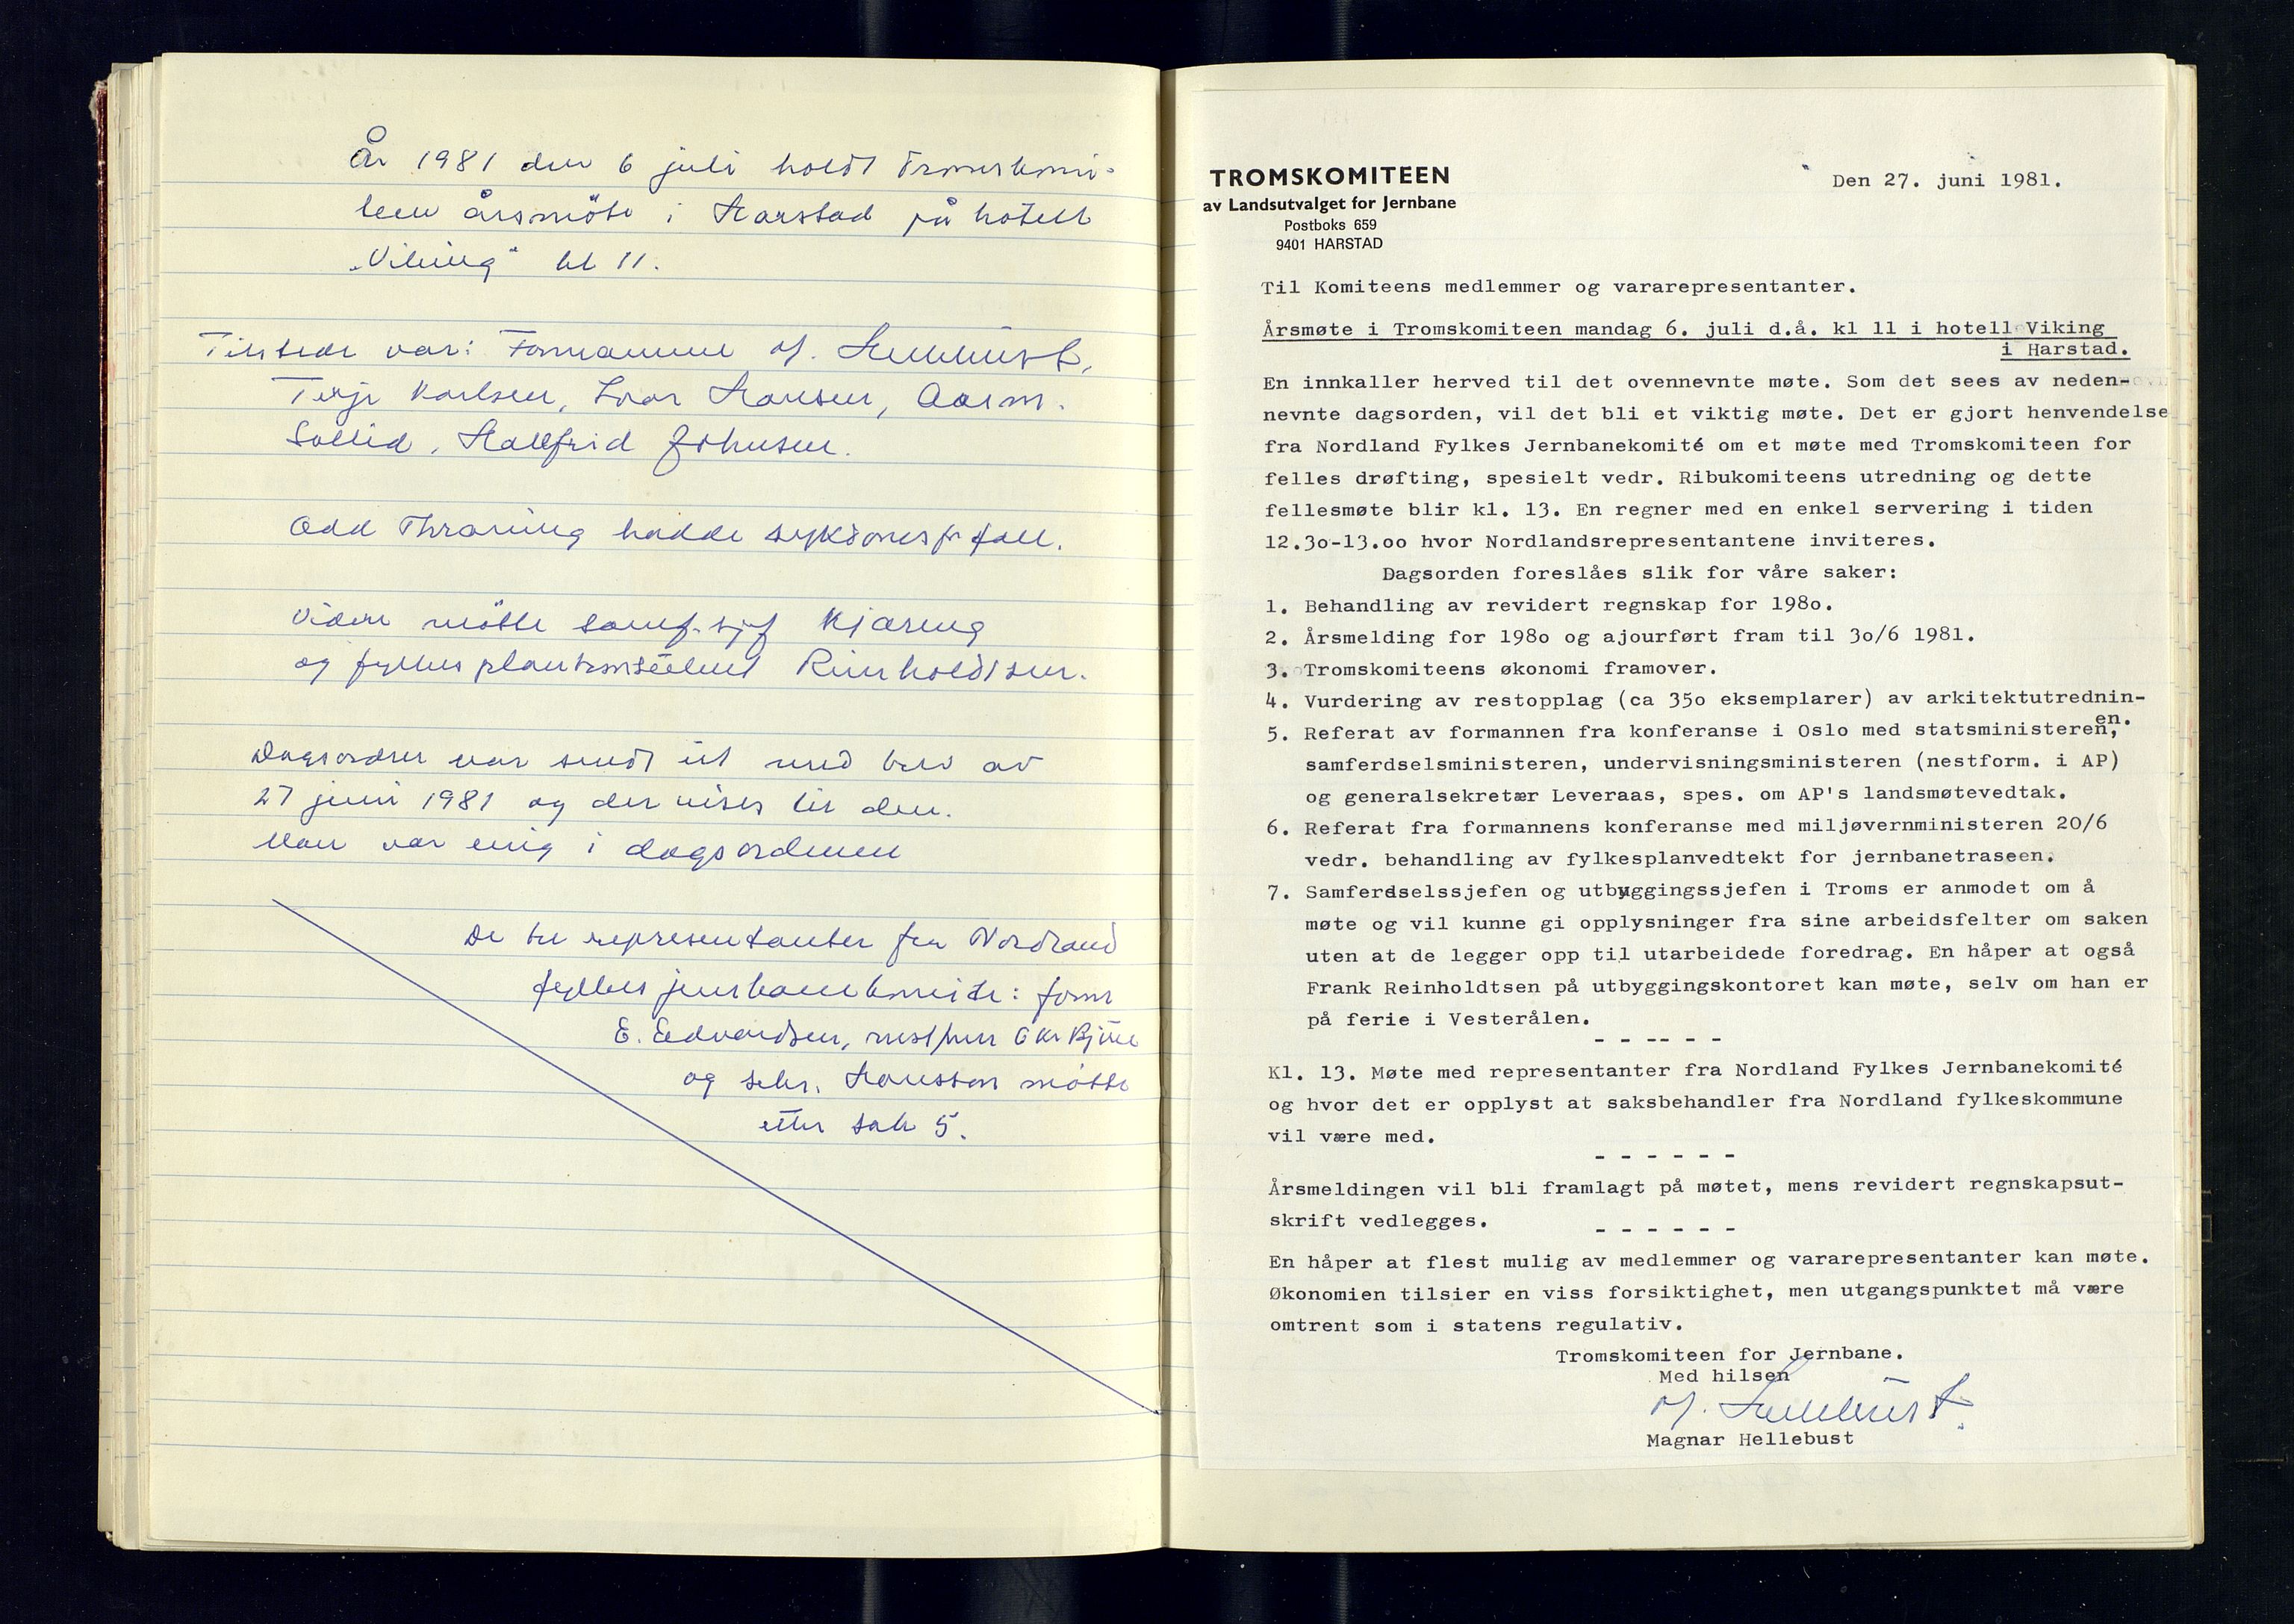 År 1981 den 6 juli holdt Tromskomi-
teen årsmöte i Harstad på hotell
"Viking" kl 11.
Tilstede var: Formannen M. Hellebust,
Terje Karlsen, Ivar Hansen, Aasm.
Sollid, Hallfrid Johnsen.
Odd Thraning hadde sykdomsforfall.
Videre mötte samf.sjef Kjæreng
og fylkesplankonsulent Reinholdtsen.
Dagsorden var sendt ut med brev av
27 juni 1981 og der vises til den.
Man var enig i dagsordenen
De tre representanter fra Nordland
fylkes jernbanekomite: form
E. Edvardsen, nestform O Kr Bjune
og sekr. Hansson mötte
etter sak 5.
TROMSKOMITEEN
av Landsutvalget for Jernbane
Postboks 659
9401 HARSTAD
Den 27. juni 1981.
Til Komiteens medlemmer og vararepresentanter.
Årsmøte i Tromskomiteen mandag 6. juli d.å. kl 11 i hotell Viking
i Harstad.
En innkaller herved til det ovennevnte møte. Som det sees av neden-
nevnte dagsorden, vil det bli et viktig møte. Det er gjort henvendelse
fra Nordland Fylkes Jernbanekomité om et møte med Tromskomiteen for
felles drøfting, spesielt vedr. Ribukomiteens utredning og dette
fellesmøte blir kl. 13. En regner med en enkel servering i tiden
12.3o-13.oo hvor Nordlandsrepresentantene inviteres.
Dagsorden foreslåes slik for våre saker:
1. Behandling av revidert regnskap for 198o.
2. Årsmelding for 198o og ajourført fram til 3o/6 1981.
3. Tromskomiteens økonomi framover.
4. Vurdering av restopplag (ca 35o eksemplarer) av arkitektutrednin-
en.
5. Referat av formannen fra konferanse i Oslo med statsministeren,
samferdselsministeren, undervisningsministeren (nestform. i AP)
og generalsekretær Leveraas, spes. om AP's landsmøtevedtak.
6. Referat fra formannens konferanse med miljøvernministeren 20/6
vedr. behandling av fylkesplanvedtekt for jernbanetraseen.
7. Samferdselssjefen og utbyggingssjefen i Troms er anmodet om å
møte og vil kunne gi opplysninger fra sine arbeidsfelter om saken
uten at de legger opp til utarbeidede foredrag. En håper at også
Frank Reinholdtsen på utbyggingskontoret kan møte, selv om han er
på ferie i Vesterålen.
- - -- - -
Kl. 13. Møte med representanter fra Nordland Fylkes Jernbanekomité
og hvor det er opplyst at saksbehandler fra Nordland fylkeskommune
vil være med.
- - - - - -
Årsmeldingen vil bli framlagt på møtet, mens revidert regnskapsut-
skrift vedlegges.
- - - - - -
En håper at flest mulig av medlemmer og vararepresentanter kan møte.
Økonomien tilsier en viss forsiktighet, men utgangspunktet må være
omtrent som i statens regulativ.
Tromskomiteen for Jernbane.
Med hilsen
M. Hellebust.
Magnar Hellebust